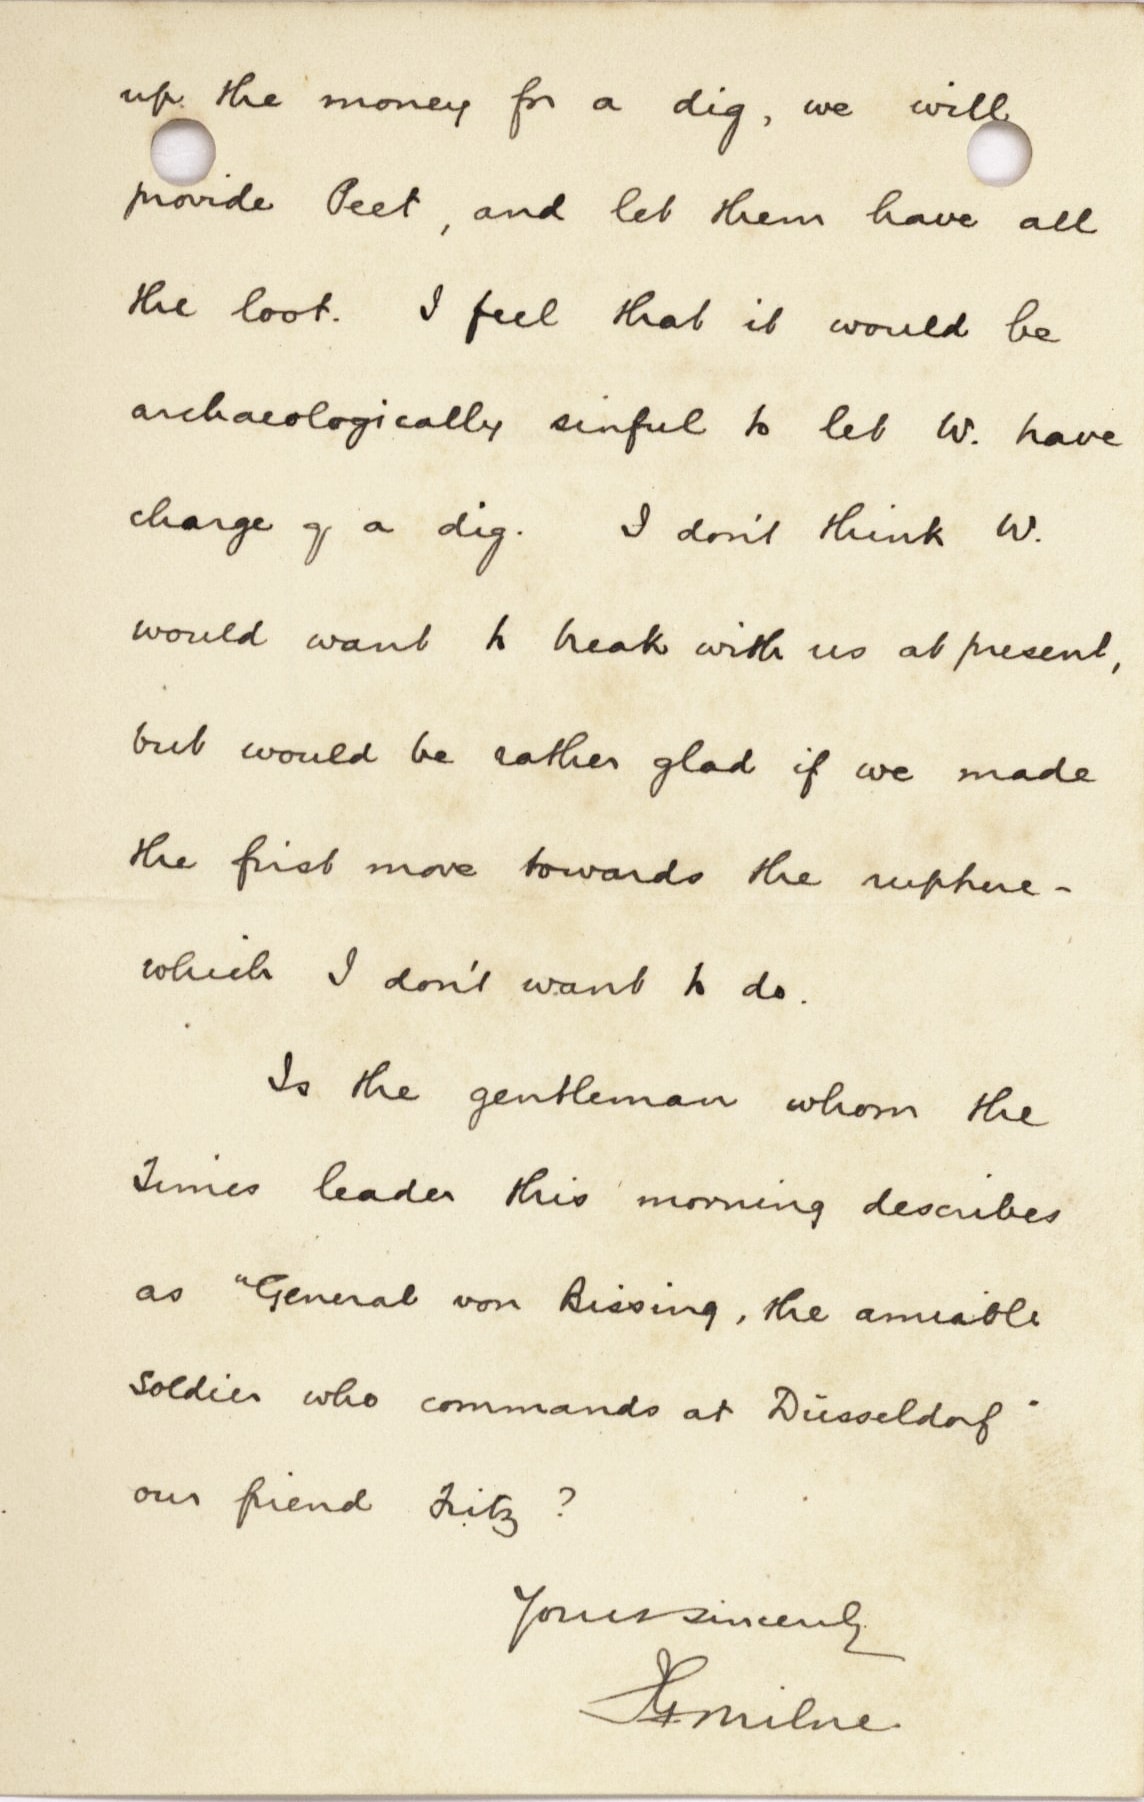 up the money for a dig, we will
provide Peet, and let them have all
the loot. I feel that it would be
archaeologically sinful to let W. have
charge of a dig. I don't think W.
would want to break with us at present,
but would be rather glad if we made
the first move towards the rupture -
which I don't want to do.
Is the gentleman whom the
Times leader this morning describes
as "General von Bissing, the amiable
soldier who commands at Düsseldorf"
our friend Fritz?
Yours sincerely
JGMilne.